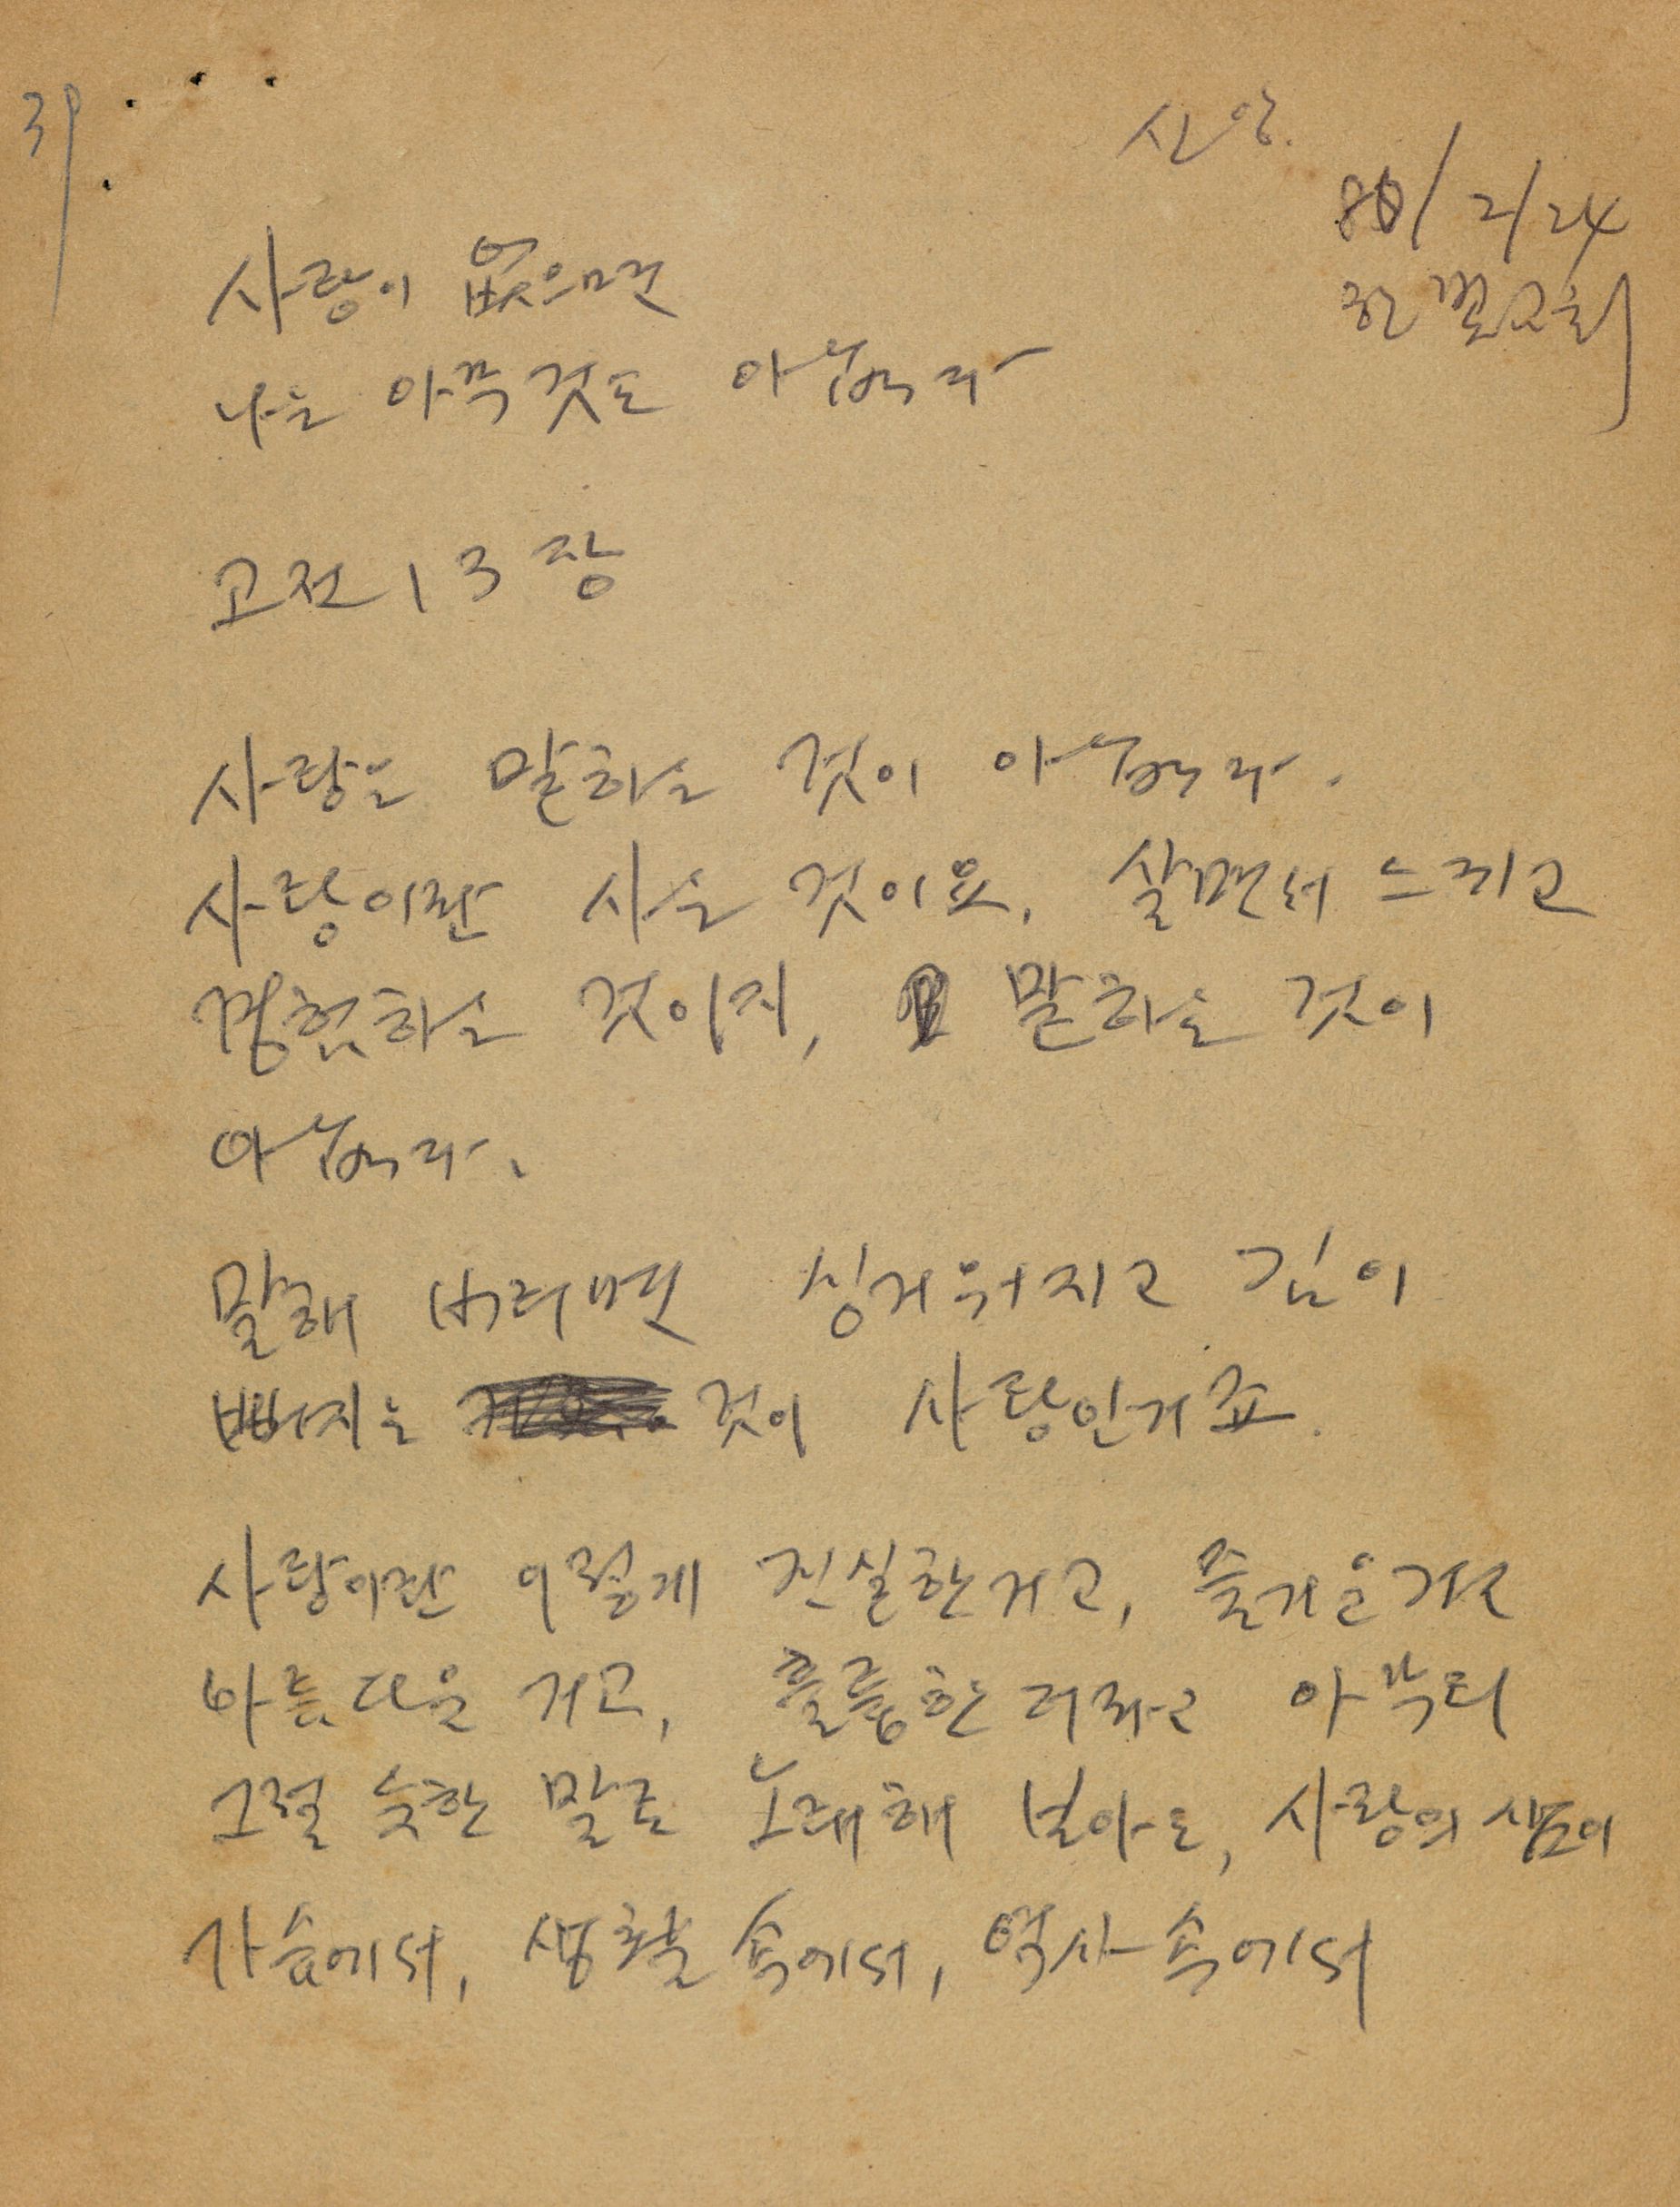 39
신앙.
80/2/24
한빛교회
사랑이 없으면
나는 아무것도 아닙니다
고전 13장
사랑은 말하는 것이 아닙니다.
사랑이란 사는 것이요, 살면서 느끼고
경험하는 것이지, 말하는 것이
아닙니다.
말해 버리면 싱거워지고 김이
빠지는 것이 사랑인거죠.
사랑이란 이렇게 진실한거고, 즐거운거고
아름다운 거고, 훌륭한 거라고 아무리
그럴 듯한 말로 노래해 보아도, 사랑의 샘이
가슴에서, 생활 속에서, 역사 속에서